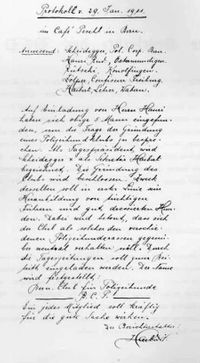 Protokoll v. 29. Jan. 1911.
im Café Percht in Bern
Anwesend: Scheidegger, Pol. Corp. Bern
Hänni, Kant.
Konolfingen
Lehrer,
Auf Einladung von Herrn Hänni
haben sich obige 8 Mann eingefun-
den, um die Frage der Gründung
eines Polizeihund Klubs zu bespre-
chen. Als Tagespräsident wird
Scheidegger & als Sekretär
bezeichnet. Die Gründung des
Clubs wird beschlossen. Zweck
desselben soll in erster Linie die
Heranbildung von tüchtigen
Führern und gut dressierten Hun-
den. Dabei wird betont, dass sich
der Club als solcher den verschie-
denen Polizeihunderassen gegenü-
ber neutral verhalten soll. Durch
die Tageszeitungen soll zum Bei-
tritt eingeladen werden. Der Name
wird festgestellt:
Bern. Club für Polizeihunde
B. C. P.
Ein jedes Mitglied soll kräftig
für die gute Sache wirken.
Der Berichterstatter: